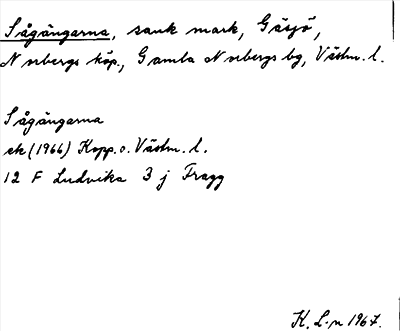 Sågängarna, sank mark, Gäsjö,
Norbergs köp., Gamla Norbergs bg, Västm. l.
Sågängarna
ek (1966) Kopp. o. Västm. l.
12 F Ludvika 3 j Fragg
K. L-n 1967.